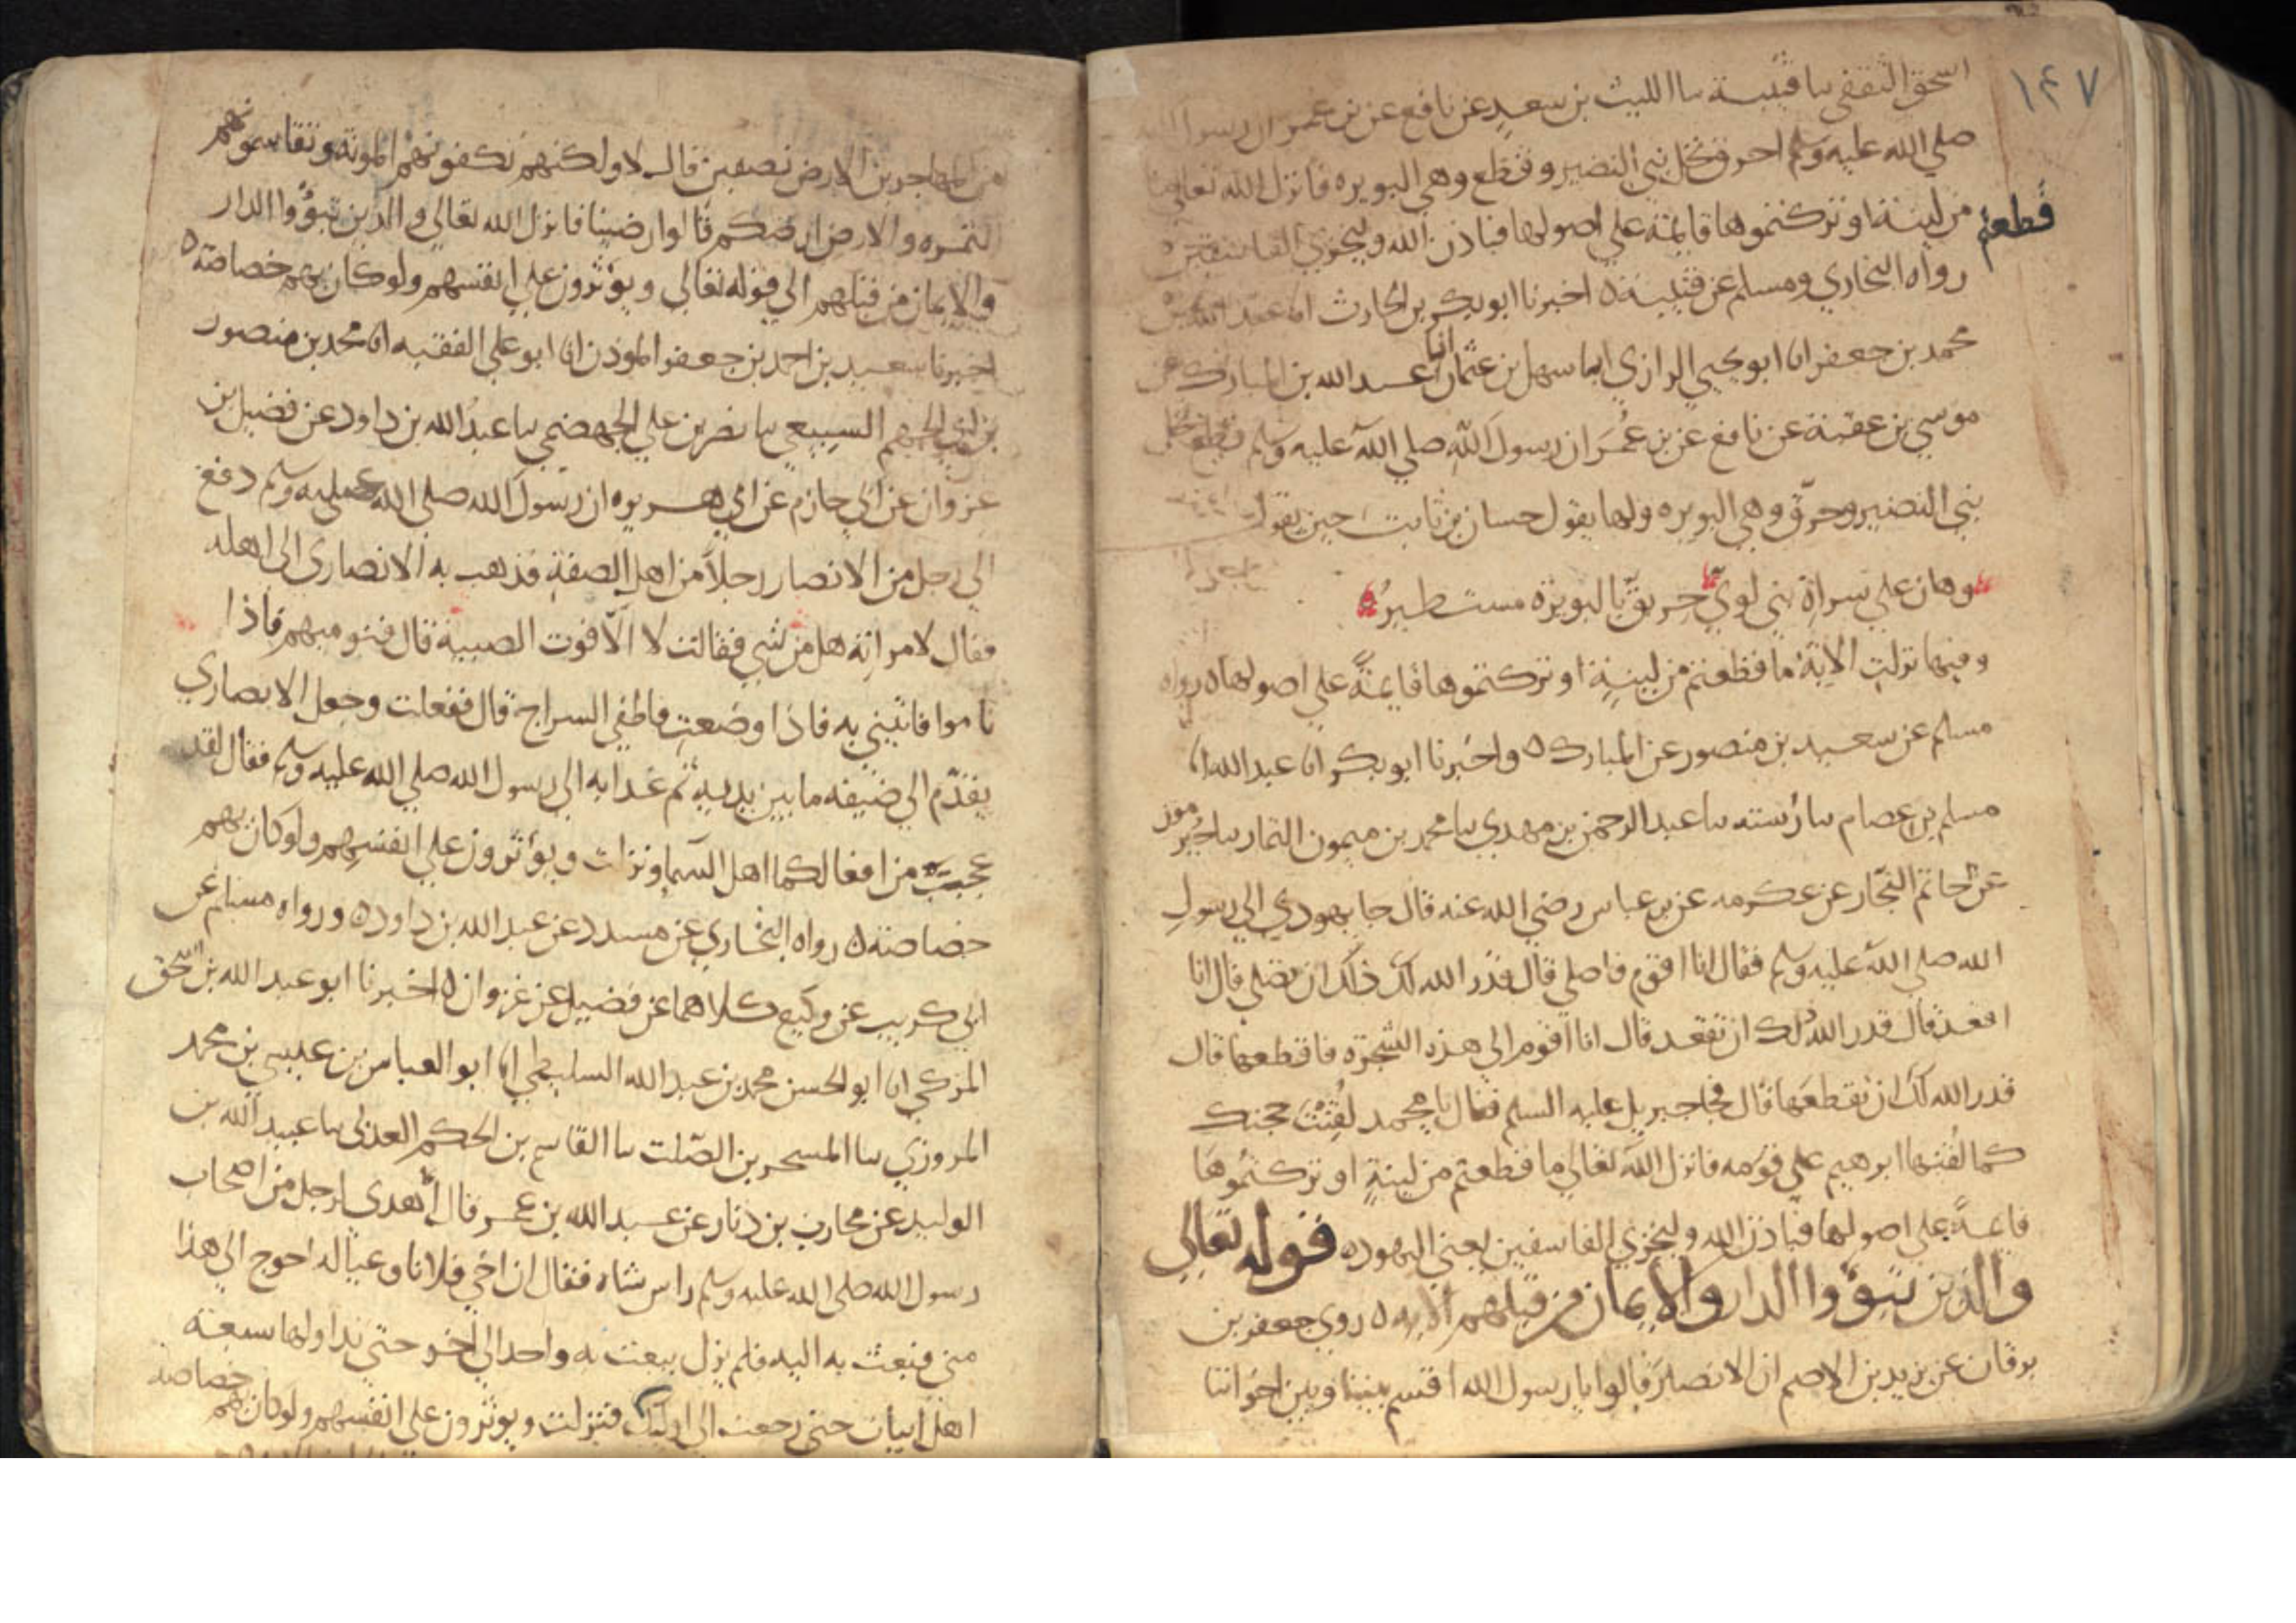 ١٤٧
اسحق الثقفي سا قتيبة سا الليث بن سعد عن نافع عن بن عمر ان رسول الله
صلي الله عليه وسلم احرق نخل بني النضير وقطع وهي البويره فانزل الله تعالي ما
قطعتم
من لينة او تركتموها قايمة علي اصولها فباذن الله وليخزي الفاسقين
رواه البخاري ومسلم عن قتيبة ٥ اخبرنا ابو بكر بن الحارث انا عبد الله بن
محمد بن جعفر انا ابو يحيي الرازي انا سهل بن عثمان انبا عبد الله بن المبارك عن
موسي بن عقبة عن نافع عن بن عمر ان رسول الله صلي الله عليه وسلم قطع نخل
بني النضير وحرق وهي البويره ولها يقول حسان بن ثابت حين يقول
وهان علي سراة بني لوي حريق بالبويرة مستطير
وفيها نزلت الاية ما قطعتم من لينة او تركتموها قايمة علي اصولها ٥ رواه
مسلم عن سعيد بن منصور عن المبارك ٥ واخبرنا ابو بكر انا عبد الله انا
مسلم بن عصام سا رسته سا عبد الرحمن بن مهدي سا محمد بن ميمون التمار سا جرموز
عن حاتم النجار عن عكرمه عن بن عباس رضي الله عنه قال جا يهودي الي رسول
الله صلي الله عليه وسلم فقال انا اقوم فاصلي قال قدر الله لك ذلك ان تصلي قال انا
اقعد قال قدر الله لك ان تقعد قال انا اقوم الي هذه الشجرة فاقطعها قال
قدر الله لك ان تقطعها قال فجا جبريل عليه السلم فقال يا محمد لقنت حجتك
كما لقنها ابرهيم علي قومه فانزل الله تعالي ما قطعتم من لينة او تركتموها
قايمة علي اصولها فباذن الله وليخزي الفاسقين يعني اليهود ٥ قوله تعالي
والذين تبوؤا الدار والايمان من قبلهم الايه ٥ روي جعفر بن
برقان عن يزيد بن الاصم ان الانصار قالوا يا رسول الله اقسم بيننا وبين اخواننا
من المهاجرين الارض نصفين قال لا ولكنهم تكفونهم المونة وتقاسمونهم
الثمره والارض ارضكم قالوا رضينا فانزل الله تعالي والذين تبوؤا الدار
والايمان من قبلهم الي قوله تعالي ويؤثرون علي انفسهم ولو كان بهم خصاصة ٥
اخبرنا سعيد بن احمد بن جعفر الموذن انا ابو علي الفقيه انا محمد بن منصور
بن ابي الجهم السبيعي سا نصر بن علي الجهضمي سا عبد الله بن داود عن فضيل بن
غزوان عن ابي حازم عن ابي هريره ان رسول الله صلي الله عليه وسلم دفع
الي رجل من الانصار رجلا من اهل الصفة فذهب به الانصاري الي اهله
فقال لامراته هل من شي فقالت لا الا قوت الصبية قال فنوميهم فاذا
ناموا فاتيني به فاذا وضعت فاطفي السراج قال ففعلت وجعل الانصاري
يقدم الي ضيفه ما بين يديه ثم غدا به الي رسول الله صلي الله عليه وسلم فقال لقد
عجبت من افعالكما اهل السما ونزلت ويؤثرون علي انفسهم ولو كان بهم
خصاصة ٥ رواه البخاري عن مسدد عن عبد الله بن داود ٥ ورواه مسلم عن
ابي كريب عن وكيع كلاهما عن فضيل عن غزوان ٥ اخبرنا ابو عبد الله بن اسحق
المزكي انا ابو الحسن محمد بن عبد الله السليطي انا ابو العباس بن عيسي بن محمد
المروزي سا المسحر بن الصلت سا القاسم بن الحكم العدني سا عبيد الله بن
الوليد عن محارب بن دثار عن عبد الله بن عمر قال اهدي لرجل من اصحاب
رسول الله صلي الله عليه وسلم راس شاه فقال ان اخي فلانا وعياله احوج الي هذا
مني فبعث به اليه فلم يزل يبعث به واحد الي اخر حتي تداولها سبعة
اهل ابيات حتي رجعت الي اوليك فنزلت ويوثرون علي انفسهم ولو كان بهم خصاصة